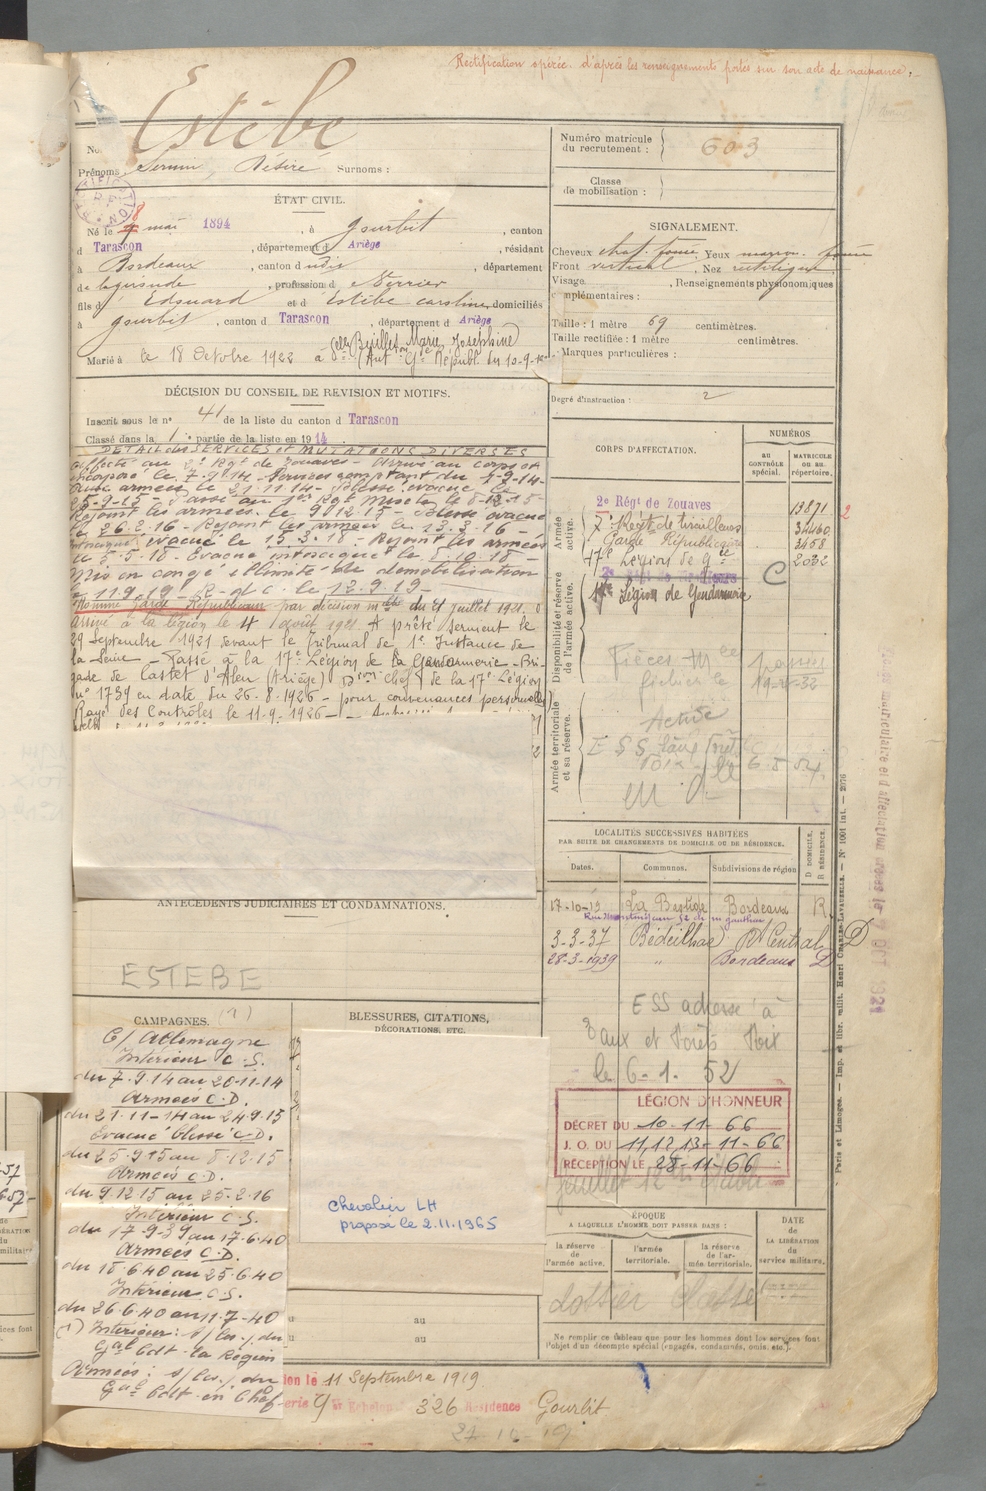 Rectification opérée d'après les renseignements portés sur son acte de naissance.
Estèbe
Prénoms : Désiré Surnoms :
Numéro matricule du recrutement : 603
Classe de mobilisation :
ÉTAT CIVIL.
Né le 8 mai 1894, à Gourbit, canton
d Tarascon, département d Ariège, résidant
à Bordeaux, canton d udis, département
de la gironde, profession d Verrier
fils d Edouard et d Estèbe caroline, domiciliés
à Gourbit, canton d Tarascon, département d Ariège
Marié à le 18 Octobre 1922 à Marie Joséphine
SIGNALEMENT.
Cheveux chat. foncé Yeux marron foncé
Front vertical, Nez rectiligne
Visage , Renseignements physionomiques
complémentaires :
Taille : 1 mètre 69 centimètres.
Taille rectifiée : 1 mètre centimètres.
Marques particulières :
Degré d'instruction : 2
DÉCISION DU CONSEIL DE REVISION ET MOTIFS.
Inscrit sous le n° 41 de la liste du canton d Tarascon
Classé dans la 1e partie de la liste en 1914
DÉTAIL des SERVICES et MUTATIONS DIVERSES
affecté au 2e Régt de Zouaves - Arrivé au corps et
incorporé le 7.9.14 -
aux armées le 21.11.14 - Blessé évacué le
25-9-15 - Passé au 1er Régt Mixte le 8-12-15
Rejoint les armées le 9.12.15 - Blessé évacué
le 26.2.16 - Rejoint les armées le 13.3.16 -
évacué le 15.3.18 - Rejoint les armées
Mis en congé illimité de démobilisation
le 11.9.19 - le 12.9.19 -
Nommé Garde Républicain par décision mlle du 21 juillet 1921. a
arrivé à la légion le 11 août 1921 A prêté serment le
29 Septembre 1921 devant le Tribunal de 1e Instance de
la Seine - Passé à la 17e Légion de la Gendarmerie - Bri-
gade de Castet d'Aleu (Ariège) de la 17e Légion
n° 1739 en date du 26.8.1926 - pour convenances personnelles)
Rayé des Contrôles le 11.9.1926 -
CORPS D'AFFECTATION.
NUMÉROS
AU CONTRÔLE SPÉCIAL.
MATRICULE OU AU RÉPERTOIRE.
Armée active.
2e Régt de Zouaves 13871
7e Régt de tirailleurs 34460
Garde Républicaine 3458
17e Légion de Gie 2032
C
17e Légion de Gendarmerie
Disponibilité et réserve de l'armée active.
Pièces
fichier le
Armée territoriale et sa réserve.
Active
ESS
6.8.54
LOCALITÉS SUCCESSIVES HABITÉES
PAR SUITE DE CHANGEMENTS DE DOMICILE OU DE RÉSIDENCE.
Dates. Communes. Subdivisions de région D DOMICILE, R RÉSIDENCE.
17-10-19 La Bastide Bordeaux R
3-3-37 Bédeilhac Rt Central D
28-3-1939 " Bordeaux D
ESS adressé à
Eaux et Forêts Foix
le 6-1. 52
LÉGION D'HONNEUR
DÉCRET DU 10-11-66
J. O. DU 11,12,13-11-66
RÉCEPTION LE 28-11-66
ANTÉCÉDENTS JUDICIAIRES ET CONDAMNATIONS.
ESTEBE
CAMPAGNES. (1)
C/ Allemagne
Intérieur C.S.
du 7.9.14 au 20-11-14
Armées C.D.
du 21-11-14 au 24.9.15
Evacué blessé C.D.
du 25.9.15 au 8.12.15
Armées C.D.
du 9.12.15 au 25.2.16
Intérieur C.S.
du 17-9-39 au 17-6-40
Armées C.D.
du 18-6-40 au 25-6-40
Intérieur C.S.
du 26.6.40 au 11-7-40
(1) Intérieur : du
Gal Cdt la Région
Armées : du
Gal Cdt en Chef
BLESSURES, CITATIONS,
DÉCORATIONS, ETC.
Chevalier LH
proposé le 2.11.1965
au
au
ÉPOQUE
A LAQUELLE L'HOMME DOIT PASSER DANS :
la réserve de l'armée active.
l'armée territoriale.
la réserve de l'armée territoriale.
DATE de LA LIBÉRATION du service militaire.
dossier classé
Ne remplir ce tableau que pour les hommes dont les services font
l'objet d'un décompte spécial (engagés, condamnés, omis, etc.).
11 Septembre 1919
9 Echelon 326 Résidence Gourbit
Paris et Limoges. — Imp. et libr. milit. Henri CHARLES-LAVAUZELLE. — N° 1001 int. — 2076